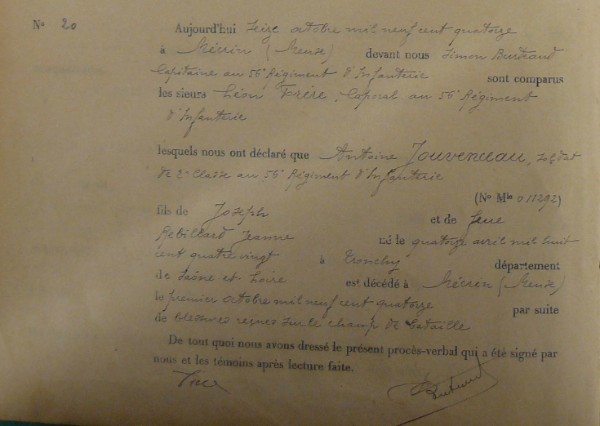 N° 20
Aujourd'hui seize octobre mil neuf cent quatorze
à Mécrin (Meuse) devant nous Simon Bertrand
Capitaine au 56e Régiment d'Infanterie sont comparus
les sieurs Léon Frère, Caporal au 56e Régiment
d'Infanterie
lesquels nous ont déclaré que Antoine Jouvenceau, soldat
de 2e Classe au 56e Régiment d'Infanterie
(No Mle 011292)
fils de Joseph et de
Rebillard Jeanne né le quatorze avril mil huit
cent quatre vingt à Tronchy département
de Saône-et-Loire est décédé à Mécrin (Meuse)
le premier octobre mil neuf cent quatorze par suite
de blessures reçues sur le champ de bataille
De tout quoi nous avons dressé le présent procès-verbal qui a été signé par
nous et les témoins après lecture faite.